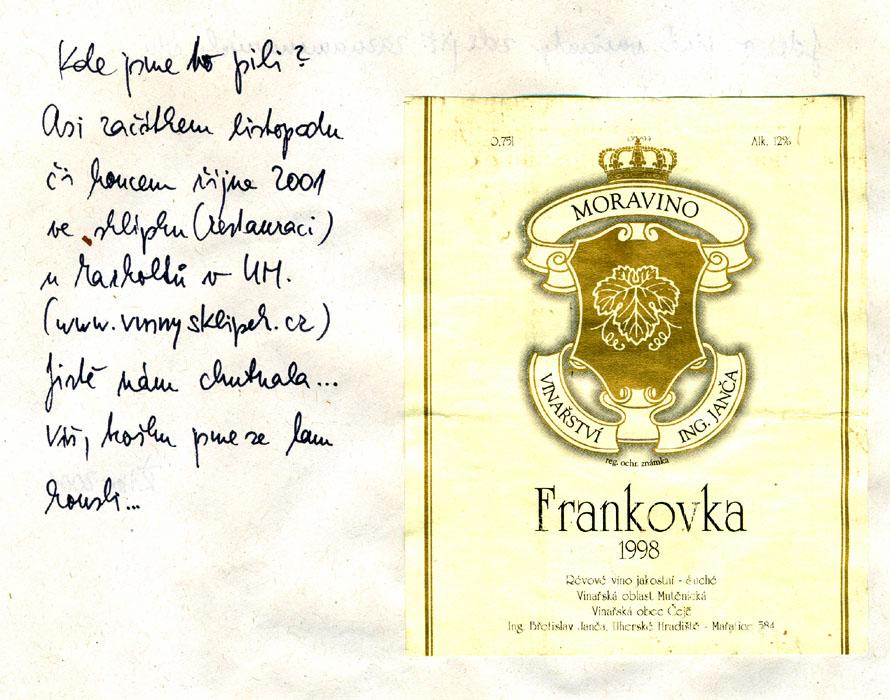 Kde jsme to pili?
Asi začátkem listopadu
či koncem října 2001
ve sklípku (restauraci)
u v UH.
(www.vinnysklipek.cz)
Jistě nám chutnala...
Víš, trošku jsme se tam
0,75l
Alk. 12%
MORAVINO
VINAŘSTVÍ
ING. JANČA
reg. ochr. známka
Frankovka
1998
Révové víno jakostní - suché
Vinařská oblast Mutěnická
Vinařská obec Čejč
Ing. Břetislav Janča, Uherské Hradiště - Mařatice 584